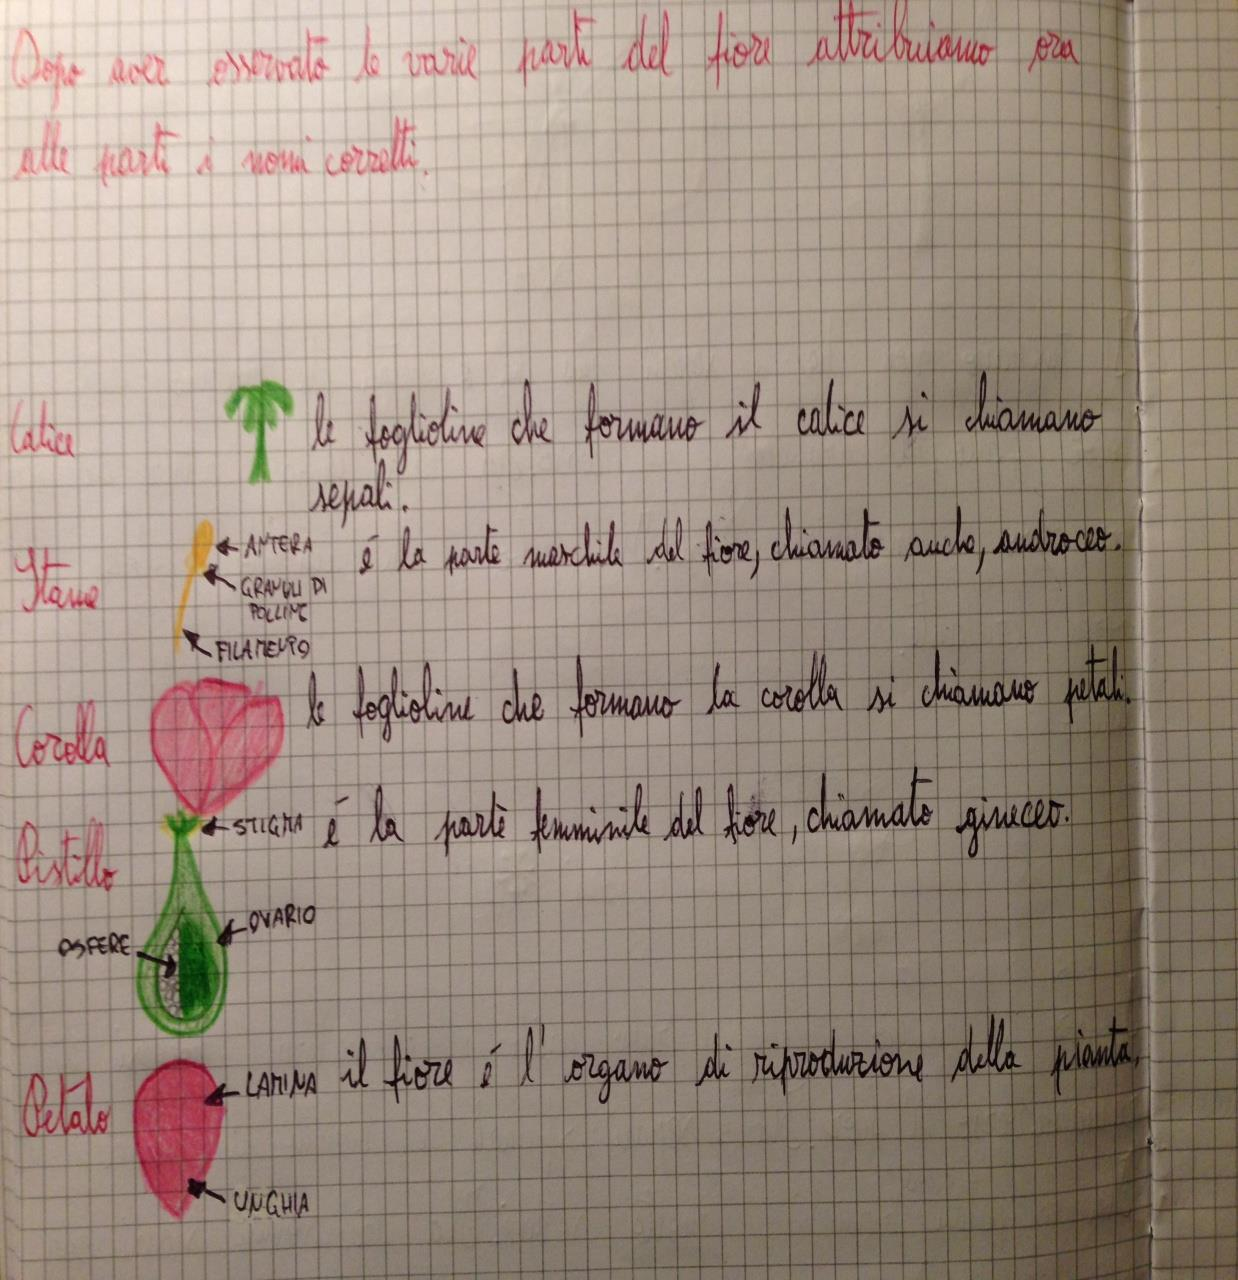 Dopo aver osservato le varie parti del fiore attribuiamo ora
alle parti i nomi corretti.
Calice
le foglioline che formano il calice si chiamano
sepali.
Stame
ANTERA
GRANULI DI
POLLINE
FILAMENTO
é la parte maschile del fiore, chiamato anche, androceo.
Corolla
le foglioline che formano la corolla si chiamano petali.
Pistillo
STIGMA
OVARIO
OSFERE
é la parte femminile del fiore, chiamato gineceo.
Petalo
LAMINA
UNGHIA
il fiore é l' organo di riproduzione della pianta.